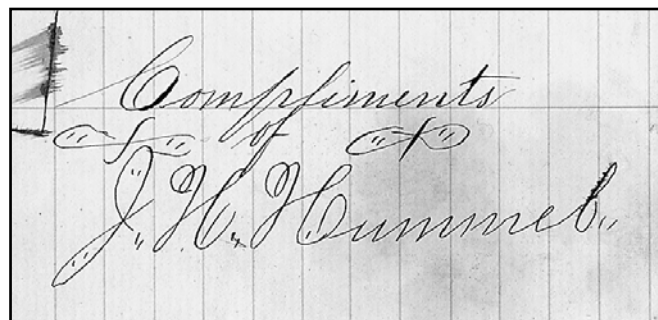 Compliments
of
J. H. Hummel.